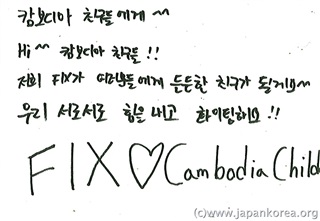 캄보디아 친구들에게 ~
Hi ^^ 캄보디아 친구들 !!
저희 FIX가 여러분들에게 든든한 친구가 될게요 ^^
우리 서로서로 힘을 내고 화이팅해요 !!
FIX♡Cambodia Child
(c)www.japankorea.org